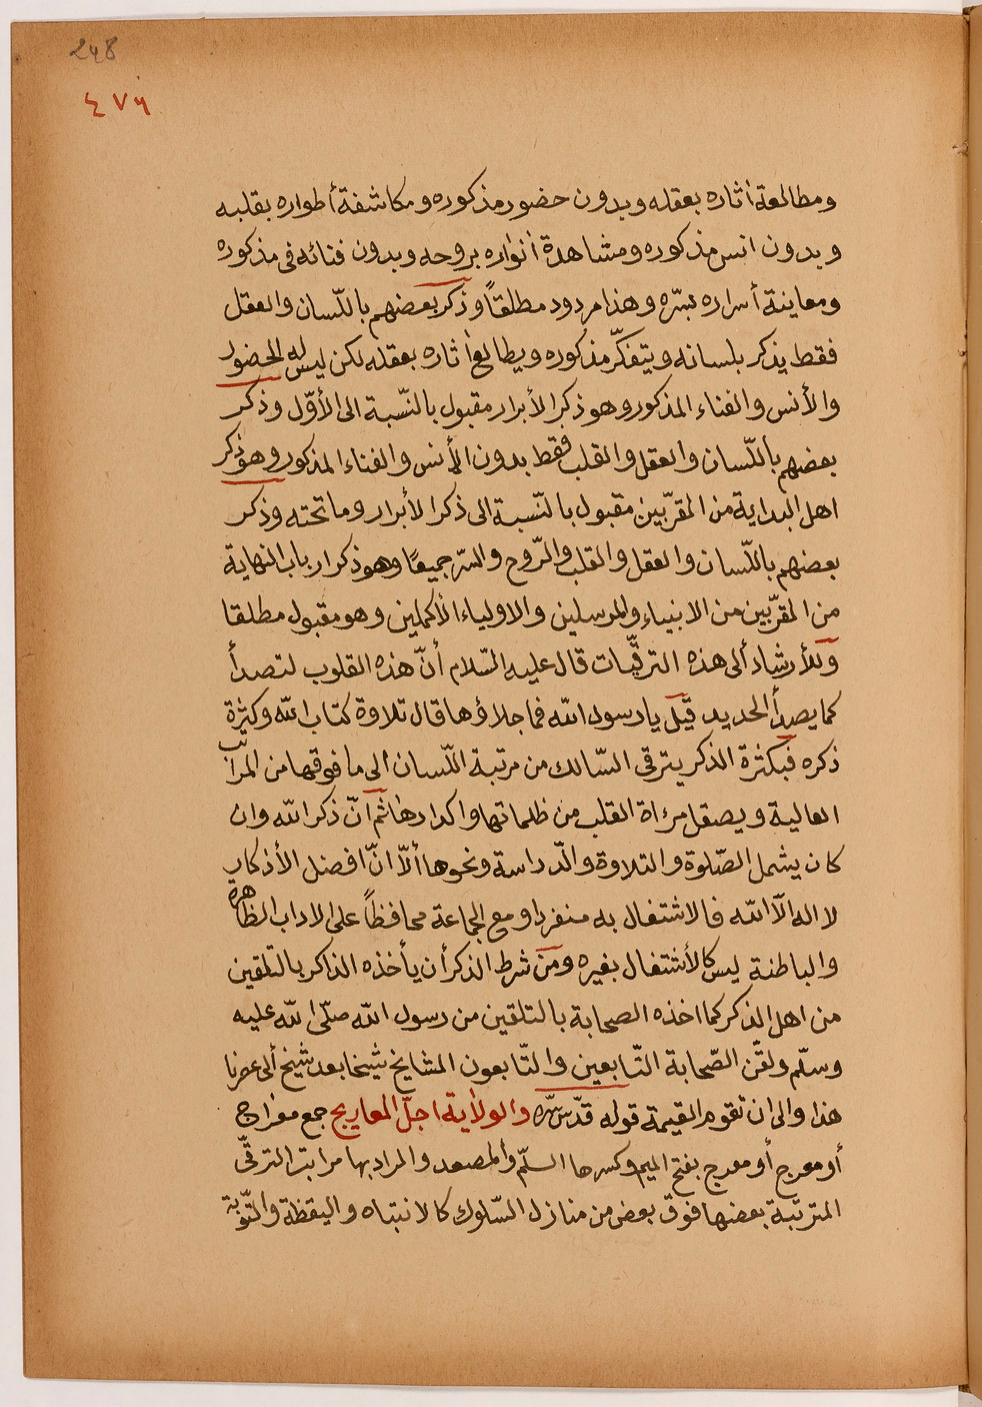 248
٤٧٦
ومطالعة أثاره بعقله وبدون حضور مذكوره ومكاشفة أطواره بقلبه
وبدون انس مذكوره ومشاهدة أنواره بروحه وبدون فنائه فى مذكوره
ومعاينة أسراره بسّره وهذا مردود مطلقاً وذكر بعضهم باللّسان والعقل
فقط يذكر بلسانه ويتفكّر مذكوره ويطالع أثاره بعقله لكن ليس له الحضور
والأنس والفناء المذكور وهو ذكر الأبرار مقبول بالنّسبة الى الأوّل وذكر
بعضهم باللّسان والعقل والقلب فقط بدون الأنس والفناء المذكور وهو ذكر
اهل البداية من المقرّبين مقبول بالنّسبة الى ذكر الأبرار وما تحته وذكر
بعضهم باللّسان والعقل والقلب والرّوح والسّر جميعًا وهو ذكر ارباب النهاية
من المقرّبين من الانبياء والمرسلين والاولياء الأكملين وهو مقبول مطلقا
وللأرشاد ألى هذه الترقّيات قال عليه السّلام أنّ هذه القلوب لتصدأ
كما يصدأ الحديد قيل يا رسول الله فما جلاؤها قال تلاوة كتاب الله وكثرة
ذكره فبكثرة الذكر يترقى السّالك من مرتبة اللّسان الى ما فوقها من المراتب
العالية ويصقل مرءاة القلب من ظلماتها واكدارها ثم انّ ذكر الله وان
كان يشمل الصّلوة والتلاوة والدّراسة ونحوها ألاّ انّ افضل الأذكار
لا اله الاّ الله فالاشتغال به منفردا ومع الجماعة محافظاً على الاداب الظاهرة
والباطنة ليس كالأشتغال بغيره ومن شرط الذكر أن يأخذه الذاكر بالتلقين
من اهل الذكر كما اخذه الصحابة بالتلقين من رسول الله صلّى الله عليه
وسلّم ولقّن الصّحابة التّابعين والتّابعون المشايخ شيخا بعد شيخ ألى عصرنا
هذا والى ان تقوم القيمة قوله قدّس سّره والولاية اجلّ المعاريج جمع معراج
أو معرج أو معرج بفتح الميم وكسرها السلّم والمصعد والمراد بها مراتب الترقّى
المترتبة بعضها فوق بعض من منازل السّلوك كالانتباه واليقظة والتّوبة